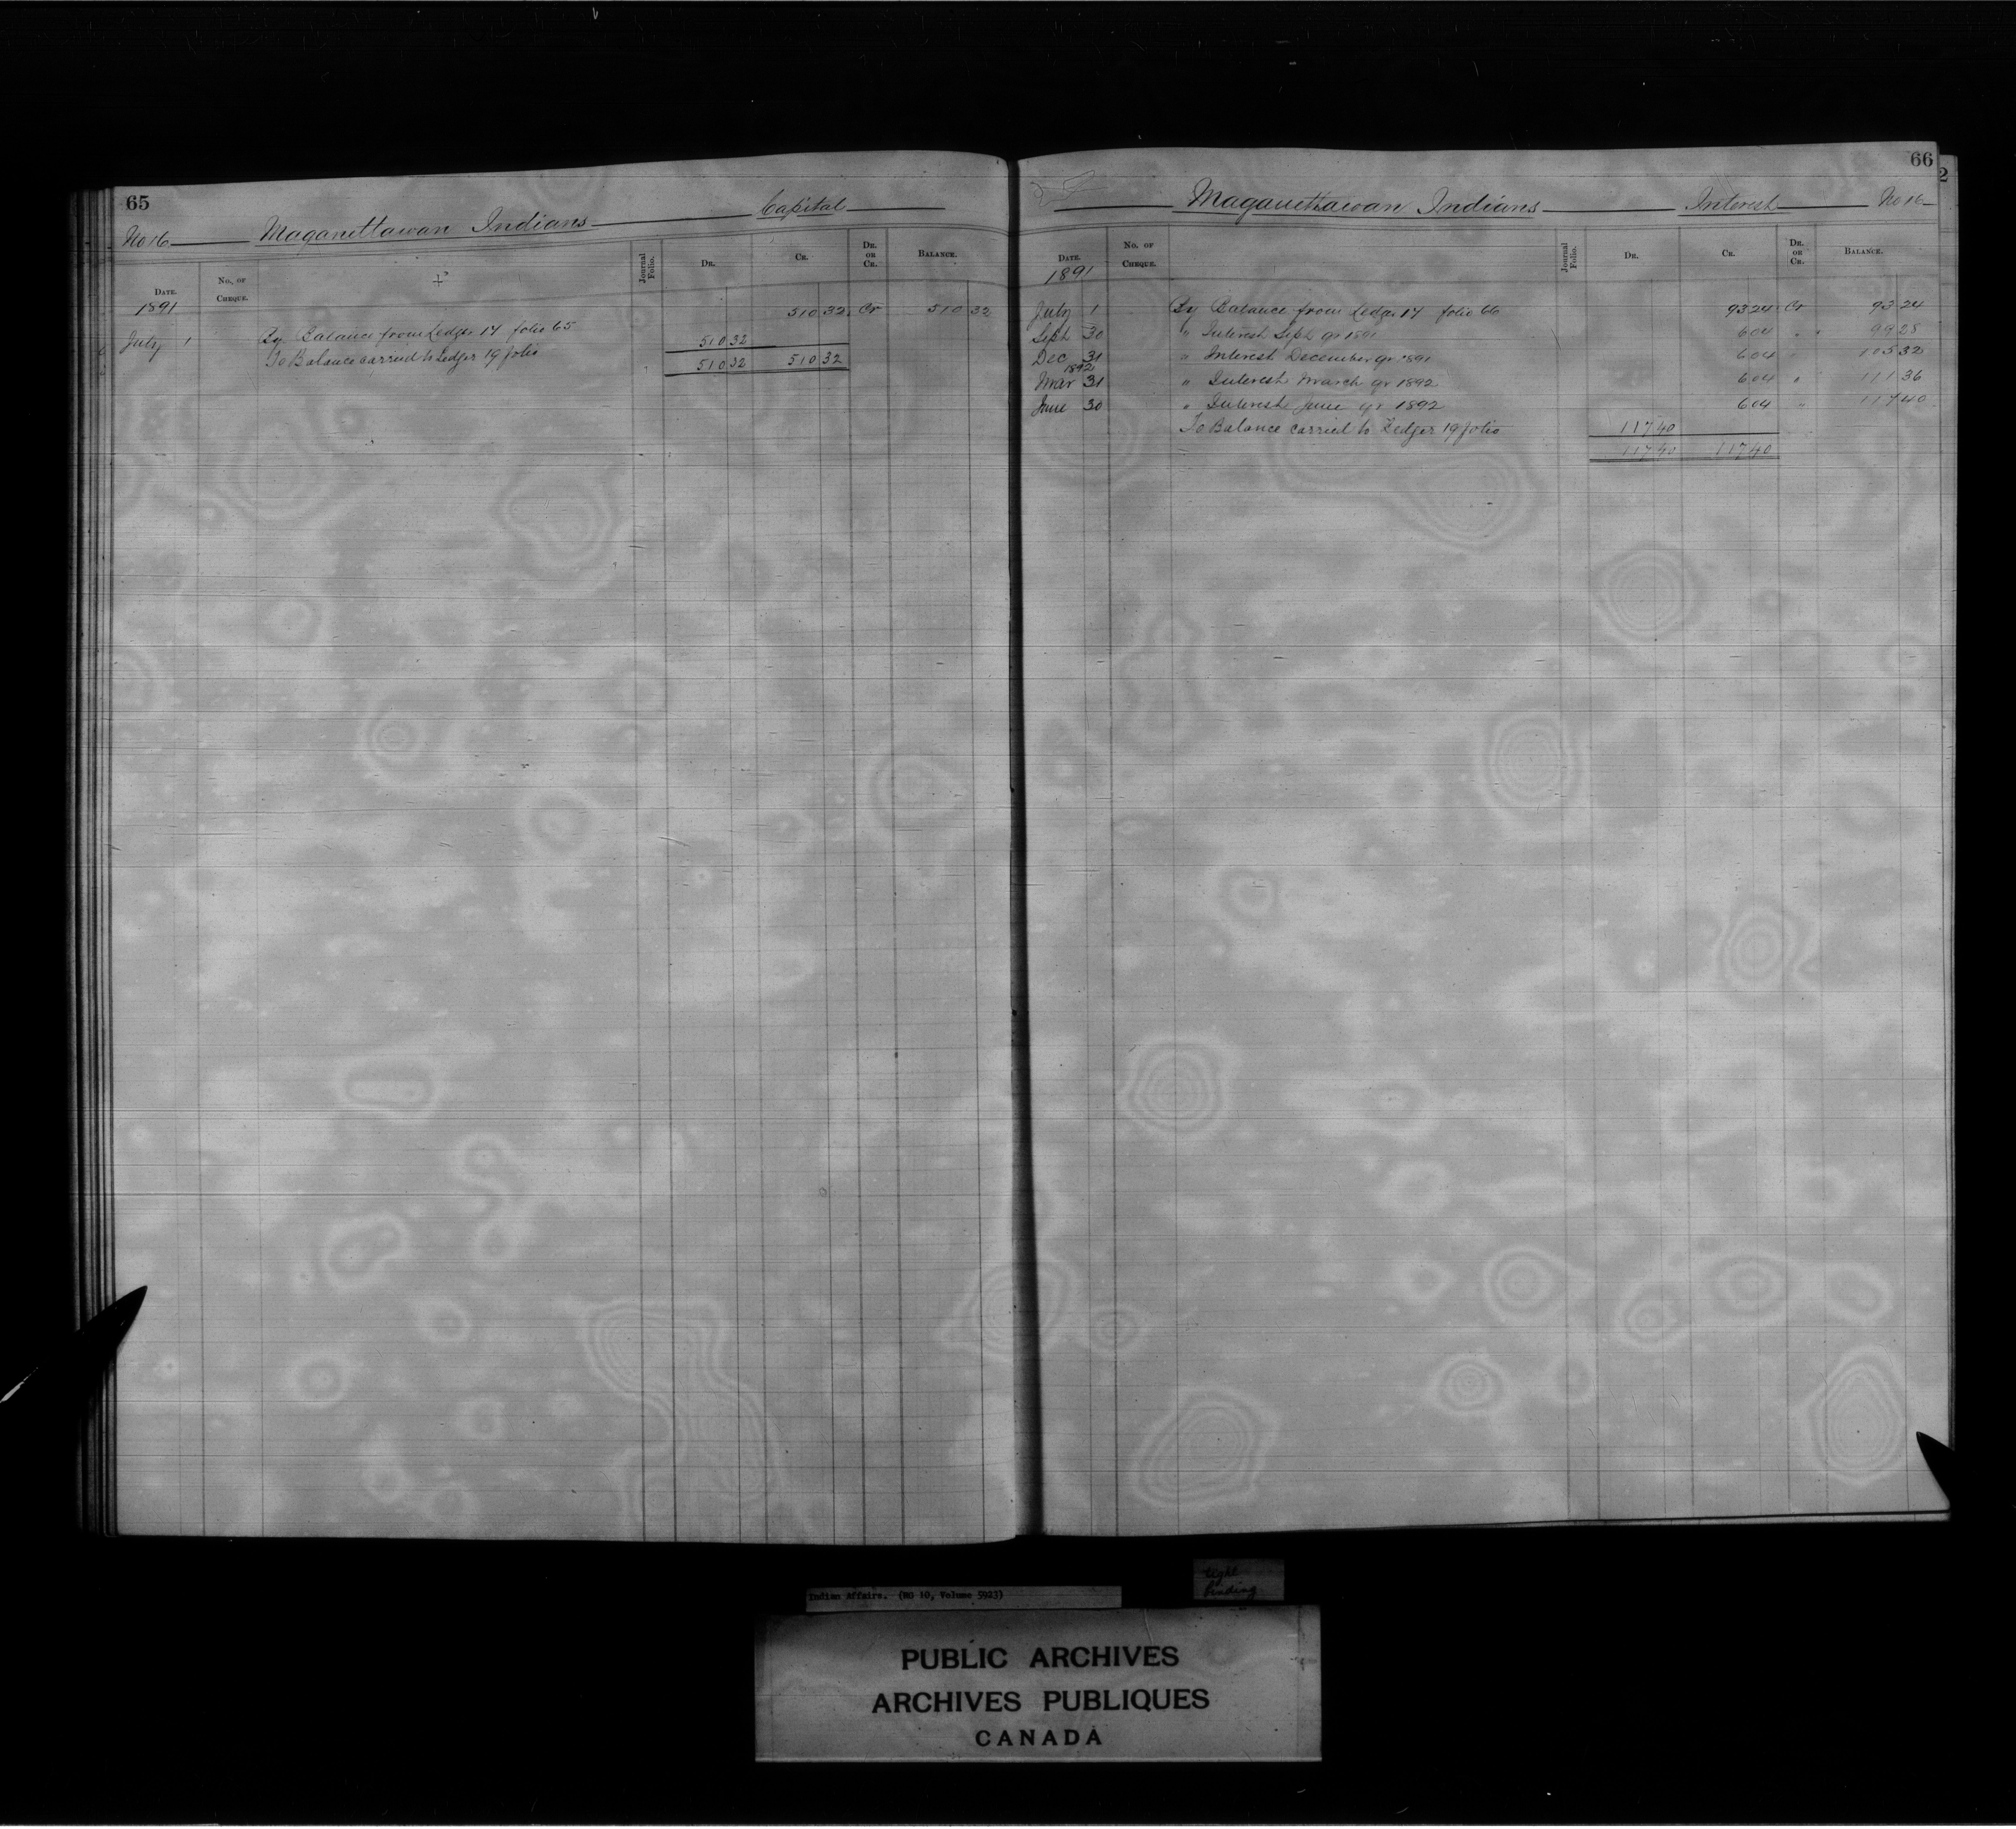 65
No 16 Maganettawan Indians Capital
Date. No. of Cheque. Journal Folio. Dr. Cr. Dr. or Cr. Balance.
1891
July 1 By Balance from Ledger 17 folio 65 510 32 Cr 510 32
To Balance carried to Ledger 19 folio 510 32
510 32 510 32
66
2
Maganettawan Indians Interest No 16
Date. No. of Cheque. Journal Folio. Dr. Cr. Dr. or Cr. Balance.
1891
July 1 By Balance from Ledger 17 folio 66 93 24 Cr 93 24
Sept 30 " Interest Sept qr 1891 6 04 " 99 28
Dec 31 " Interest December qr 1891 6 04 " 105 32
1892
Mar 31 " Interest March qr 1892 6 04 " 111 36
June 30 " Interest June qr 1892 6 04 " 117 40
To Balance carried to Ledger 19 folio 117 40
117 40 117 40
Indian Affairs. (RG 10, Volume 5923)
tight
binding
PUBLIC ARCHIVES
ARCHIVES PUBLIQUES
CANADA